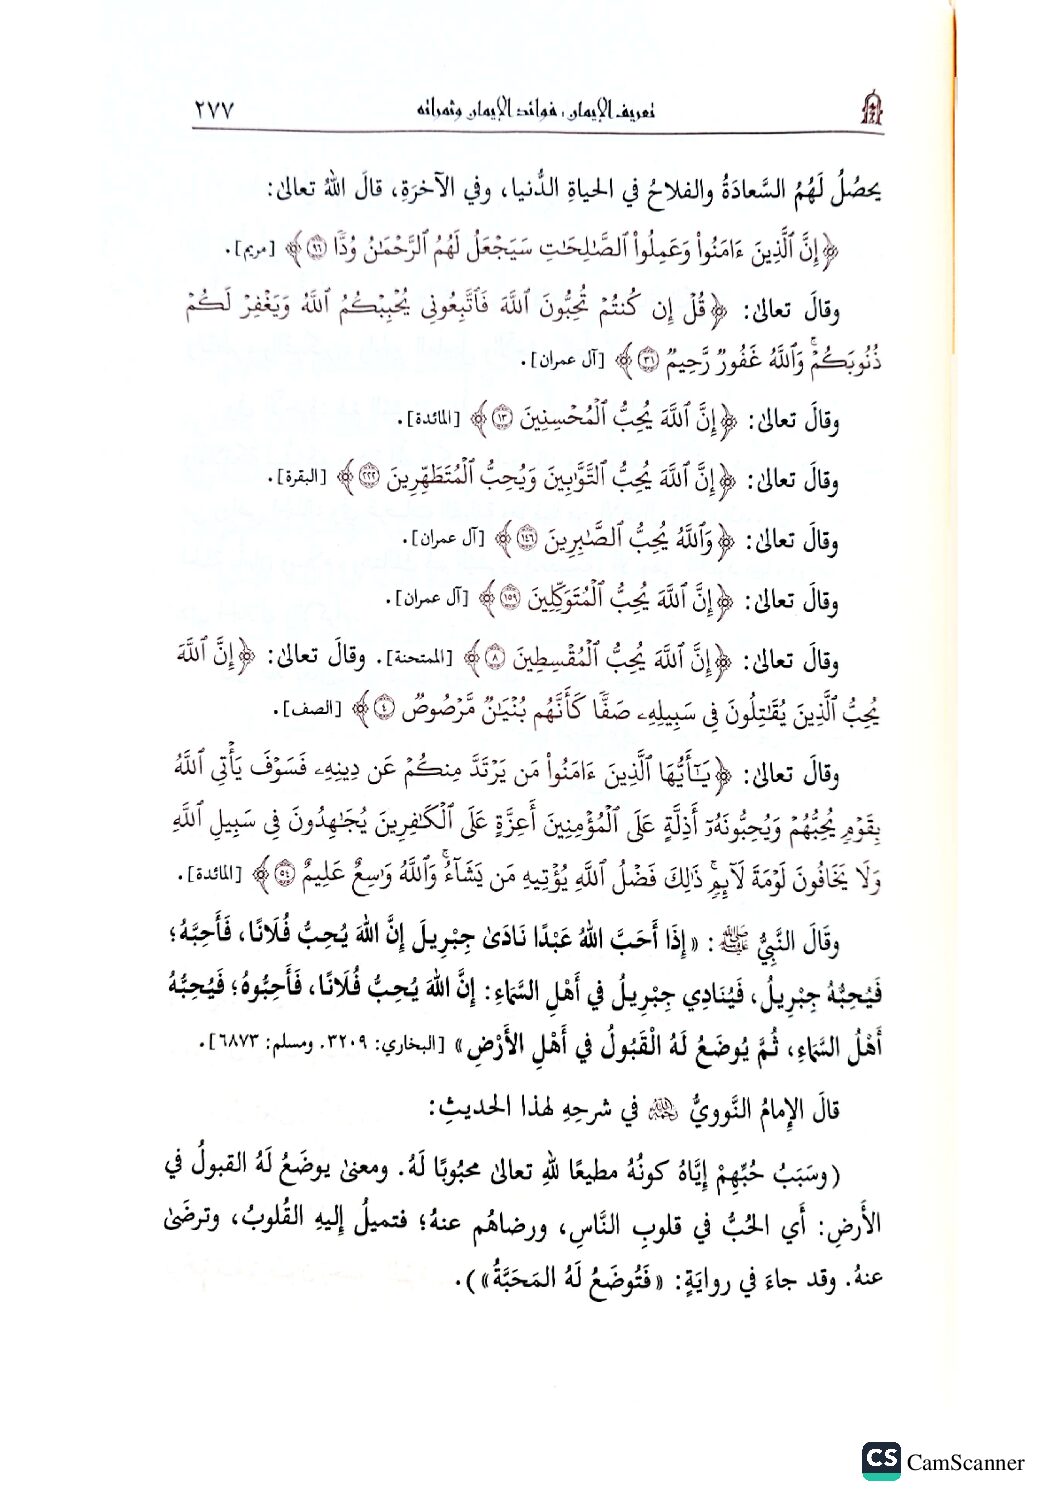 تعريف الإيمان ، فوائد الإيمان وثمراته ٢٧٧
يحصُلُ لَهُمُ السَّعادَةُ والفلاحُ في الحياةِ الدُّنيا، وفي الآخرَةِ، قالَ اللهُ تعالىٰ:
﴿إِنَّ ٱلَّذِينَ ءَامَنُواْ وَعَمِلُواْ ٱلصَّـٰلِحَـٰتِ سَيَجْعَلُ لَهُمُ ٱلرَّحْمَـٰنُ وُدًّا ٩٦﴾ [مريم].
وقالَ تعالىٰ: ﴿قُلْ إِن كُنتُمْ تُحِبُّونَ ٱللَّهَ فَٱتَّبِعُونِي يُحْبِبْكُمُ ٱللَّهُ وَيَغْفِرْ لَكُمْ
ذُنُوبَكُمْ ۗ وَٱللَّهُ غَفُورٌ رَّحِيمٌ ٣١﴾ [آل عمران].
وقالَ تعالىٰ: ﴿إِنَّ ٱللَّهَ يُحِبُّ ٱلْمُحْسِنِينَ ١٣﴾ [المائدة].
وقالَ تعالىٰ: ﴿إِنَّ ٱللَّهَ يُحِبُّ ٱلتَّوَّٰبِينَ وَيُحِبُّ ٱلْمُتَطَهِّرِينَ ٢٢٢﴾ [البقرة].
وقالَ تعالىٰ: ﴿وَٱللَّهُ يُحِبُّ ٱلصَّـٰبِرِينَ ١٤٦﴾ [آل عمران].
وقالَ تعالىٰ: ﴿إِنَّ ٱللَّهَ يُحِبُّ ٱلْمُتَوَكِّلِينَ ١٥٩﴾ [آل عمران].
وقالَ تعالىٰ: ﴿إِنَّ ٱللَّهَ يُحِبُّ ٱلْمُقْسِطِينَ ٨﴾ [الممتحنة]. وقالَ تعالىٰ: ﴿إِنَّ ٱللَّهَ
يُحِبُّ ٱلَّذِينَ يُقَـٰتِلُونَ فِي سَبِيلِهِۦ صَفًّا كَأَنَّهُم بُنْيَـٰنٌ مَّرْصُوصٌ ٤﴾ [الصف].
وقالَ تعالىٰ: ﴿يَـٰٓأَيُّهَا ٱلَّذِينَ ءَامَنُواْ مَن يَرْتَدَّ مِنكُمْ عَن دِينِهِۦ فَسَوْفَ يَأْتِي ٱللَّهُ
بِقَوْمٍ يُحِبُّهُمْ وَيُحِبُّونَهُۥٓ أَذِلَّةٍ عَلَى ٱلْمُؤْمِنِينَ أَعِزَّةٍ عَلَى ٱلْكَـٰفِرِينَ يُجَـٰهِدُونَ فِي سَبِيلِ ٱللَّهِ
وَلَا يَخَافُونَ لَوْمَةَ لَآئِمٍ ۚ ذَٰلِكَ فَضْلُ ٱللَّهِ يُؤْتِيهِ مَن يَشَآءُ ۚ وَٱللَّهُ وَٰسِعٌ عَلِيمٌ ٥٤﴾ [المائدة].
وقَالَ النَّبِيُّ ﷺ: «إِذَا أَحَبَّ اللهُ عَبْدًا نَادَىٰ جِبْرِيلَ إِنَّ اللهَ يُحِبُّ فُلَانًا، فَأَحِبَّهُ؛
فَيُحِبُّهُ جِبْرِيلُ، فَيُنَادِي جِبْرِيلُ فِي أَهْلِ السَّمَاءِ: إِنَّ اللهَ يُحِبُّ فُلَانًا، فَأَحِبُّوهُ؛ فَيُحِبُّهُ
أَهْلُ السَّمَاءِ، ثُمَّ يُوضَعُ لَهُ الْقَبُولُ فِي أَهْلِ الأَرْضِ» [البخاري: ٣٢٠٩. ومسلم: ٦٨٧٣].
قالَ الإِمامُ النَّوويُّ رحمه الله في شرحِهِ لهذا الحديثِ:
(وسَبَبُ حُبِّهِمْ إِيَّاهُ كونُهُ مطيعًا للهِ تعالىٰ محبُوبًا لَهُ. ومعنىٰ يوضَعُ لَهُ القبولُ في
الأَرضِ: أَي الحُبُّ في قلوبِ النَّاسِ، ورضاهُم عنهُ؛ فتميلُ إِليهِ القُلوبُ، وترضَىٰ
عنهُ. وقد جاءَ في روايَةٍ: «فَتُوضَعُ لَهُ المَحَبَّةُ»).
CS CamScanner